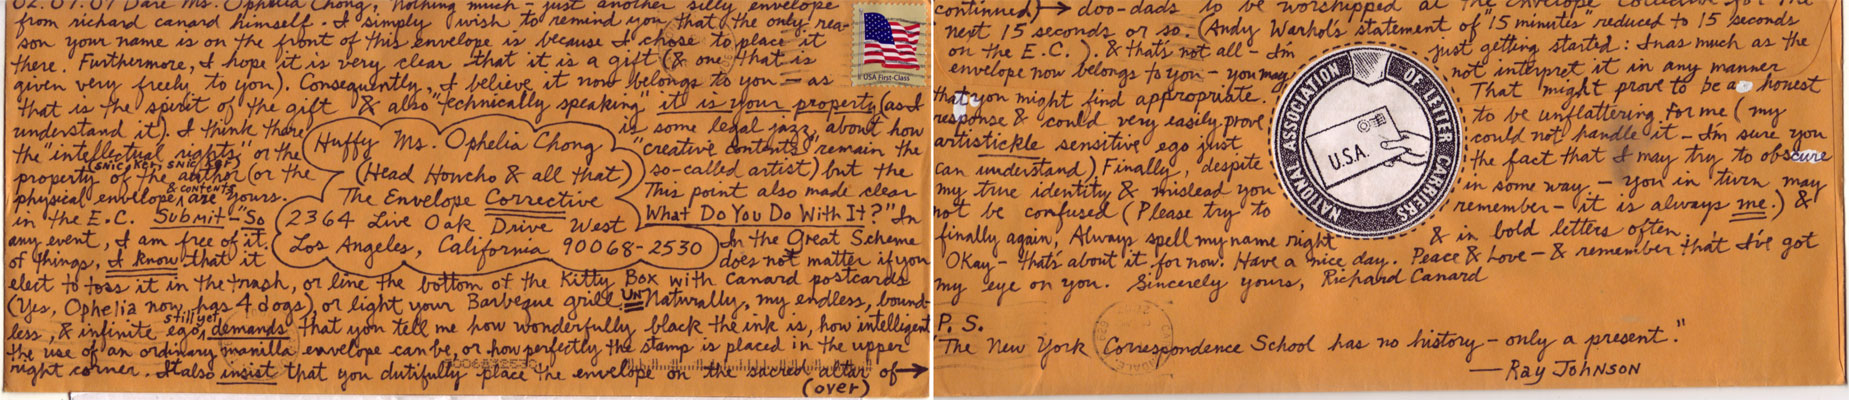 02.07.07 Dare Ms. Ophelia Chong, Nothing much - just another silly envelope
from richard canard himself. I simply wish to remind you that the only rea-
son your name is on the front of this envelope is because I chose to place it
there. Furthermore, I hope it is very clear that it is a gift (& one that is
given very freely to you). Consequently, I believe it now belongs to you — as
that is the spirit of the gift & also "technically speaking" it is your property (as I
understand it). I think there is some legal jazz, about how
the "intellectual rights," or the "creative contents" remain the
(snic, ker, snic, ker)
property of the author (or the so-called artist) but the
& contents
physical envelope are yours. This point also made clear
in the E.C. Submit - "So What Do You Do With It?" In
any event, I am free of it. In the Great Scheme
of things, I know that it does not matter if you
elect to toss it in the trash, or line the bottom of the Kitty Box with Canard postcards
(Yes, Ophelia now has 4 dogs) or light your Barbeque grill. UN Naturally, my endless, bound-
still yet
less, & infinite ego, demands that you tell me how wonderfully black the ink is, how intelligent
the use of an ordinary manilla envelope can be, or how perfectly the stamp is placed in the upper
right corner. It also insist that you dutifully place the envelope on the sacred altar of →
(over)
Huffy Ms. Ophelia Chong
(Head Honcho & all that)
The Envelope Corrective
2364 Live Oak Drive West
Los Angeles, California 90068-2530
USA First-Class
continued) → doo-dads to be worshipped at the Envelope Collective for the
next 15 seconds or so. (Andy Warhol's statement of "15 minutes" reduced to 15 seconds
on the E.C.). & that's not all — I'm just getting started: Inas much as the
envelope now belongs to you — you may not interpret it in any manner
that you might find appropriate. That might prove to be an honest
response & could very easily prove to be unflattering for me (my
artistickle sensitive ego just could not handle it — I'm sure you
can understand) Finally, despite the fact that I may try to obscure
my true identity & mislead you in some way — you in turn may
not be confused (Please try to remember — it is always me.) &
finally again, Always spell my name right & in bold letters often.
Okay — that's about it for now. Have a nice day. Peace & Love — & remember that I've got
my eye on you. Sincerely yours, Richard Canard
NATIONAL ASSOCIATION OF LETTER CARRIERS
U.S.A.
P.S.
"The New York Correspondence School has no history — only a present."
— Ray Johnson